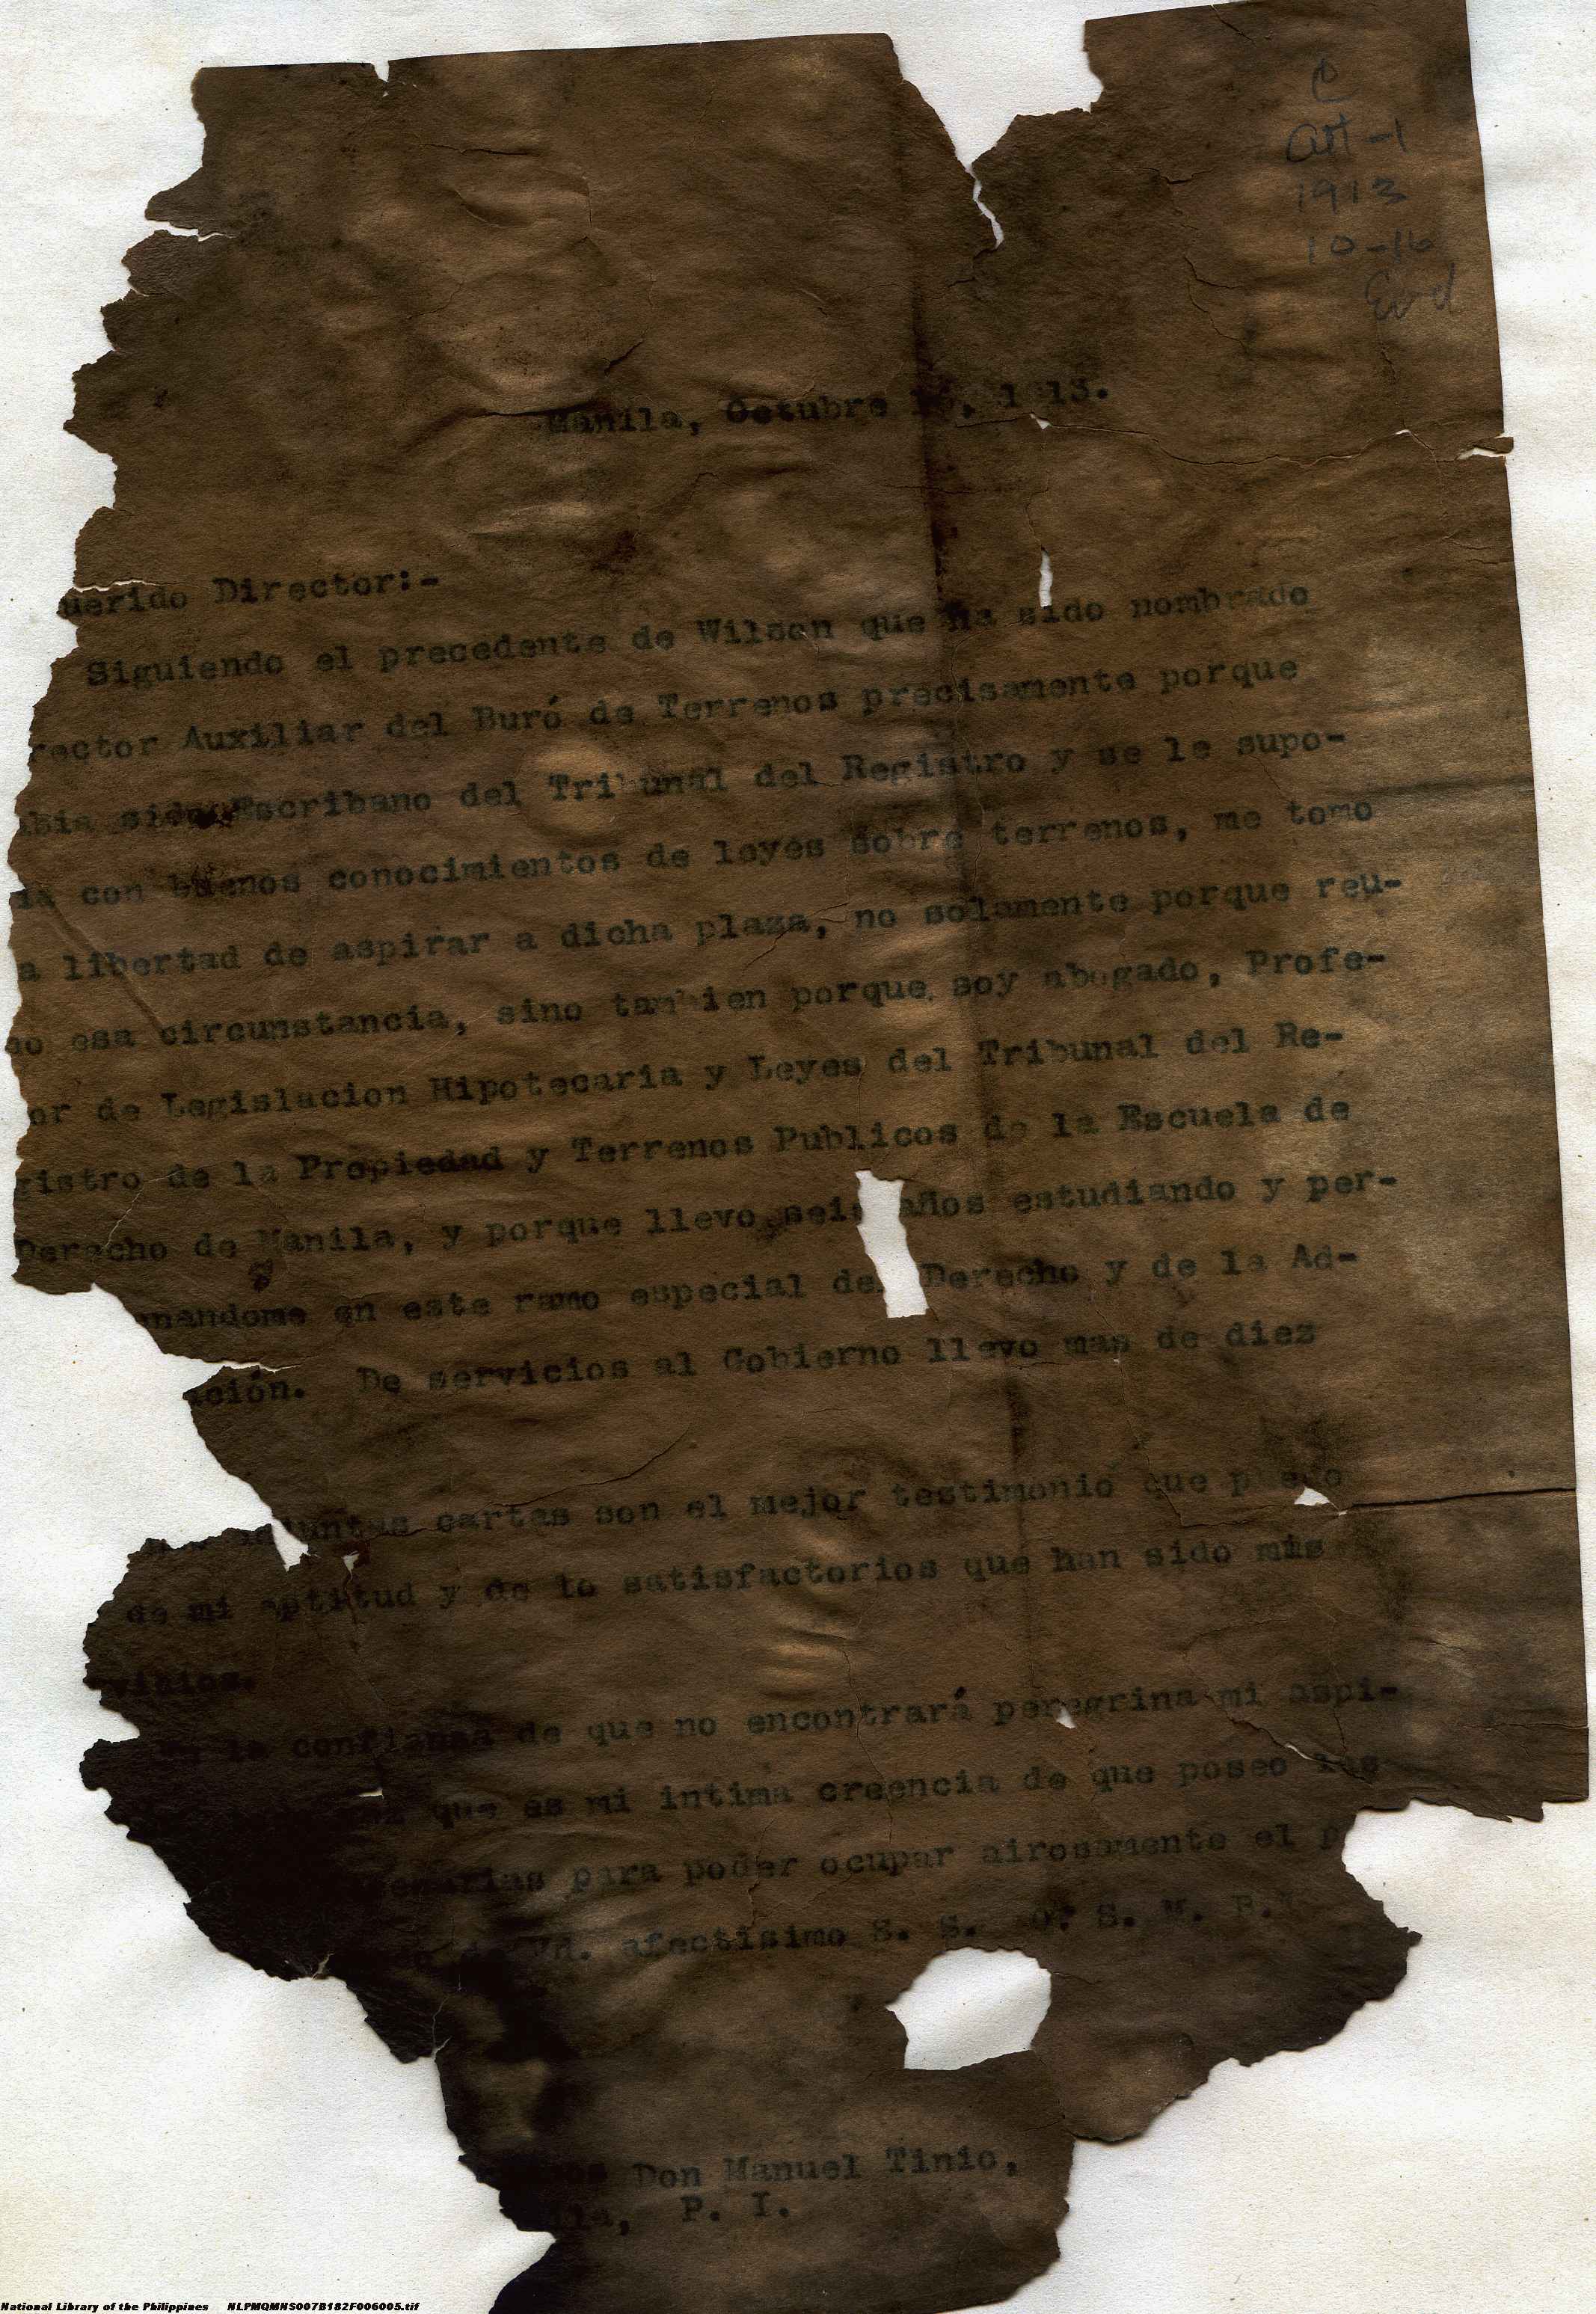 C
Art-1
1913
10-16
Manila, Octubre 1913.
uerido Director:-
Siguiendo el precedente de Wilson que ha sido nombrado
rector Auxiliar del Buró de Terrenos precisamente porque
abia sido Escribano del Tribunal del Registro y se le supo-
ia con buenos conocimientos de leyes sobre terrenos, me tomo
a libertad de aspirar a dicha plaza, no solamente porque reu-
no esa circunstancia, sino tambien porque soy abogado, Profe-
or de Legislacion Hipotecaria y Leyes del Tribunal del Re-
gistro de la Propiedad y Terrenos Publicos de la Escuela de
Derecho de Manila, y porque llevo seis años estudiando y per-
nandome en este ramo especial del Derecho y de la Ad-
ación. De servicios al Gobierno llevo mas de diez
adjuntas cartas son el mejor testimonio que puedo
de mi aptitud y de lo satisfactorios que han sido mis
vicios.
En la confianza de que no encontrará peregrina mi aspi-
que es mi intima creencia de que poseo las
esarias para poder ocupar airosamente el p
de Vd. afectisimo S. S. Q. S. M. B.
Don Manuel Tinio,
ila, P. I.
National Library of the Philippines NLPMQMNS007B182F006005.tif